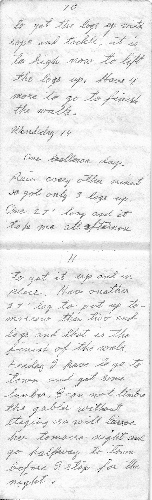 10
to get the logs up with
rope and tackle. it is
to high now to lift
the logs up. Have 4
more to go to finish
the walls.
Wendsday 14
One mellower day.
Rain every other minut
so got only 3 logs up.
One 25' long and it
took me all afternoon
11
to get it up and in
place. Have another
25' log to put up to-
morrow then two end
logs and that is the
finish of the walls
I have to go to
town and get some
lumber. I can not timber
the gables without
staging so will leave
her tomorrow night and
go halfway to town
before I stop for the
night.